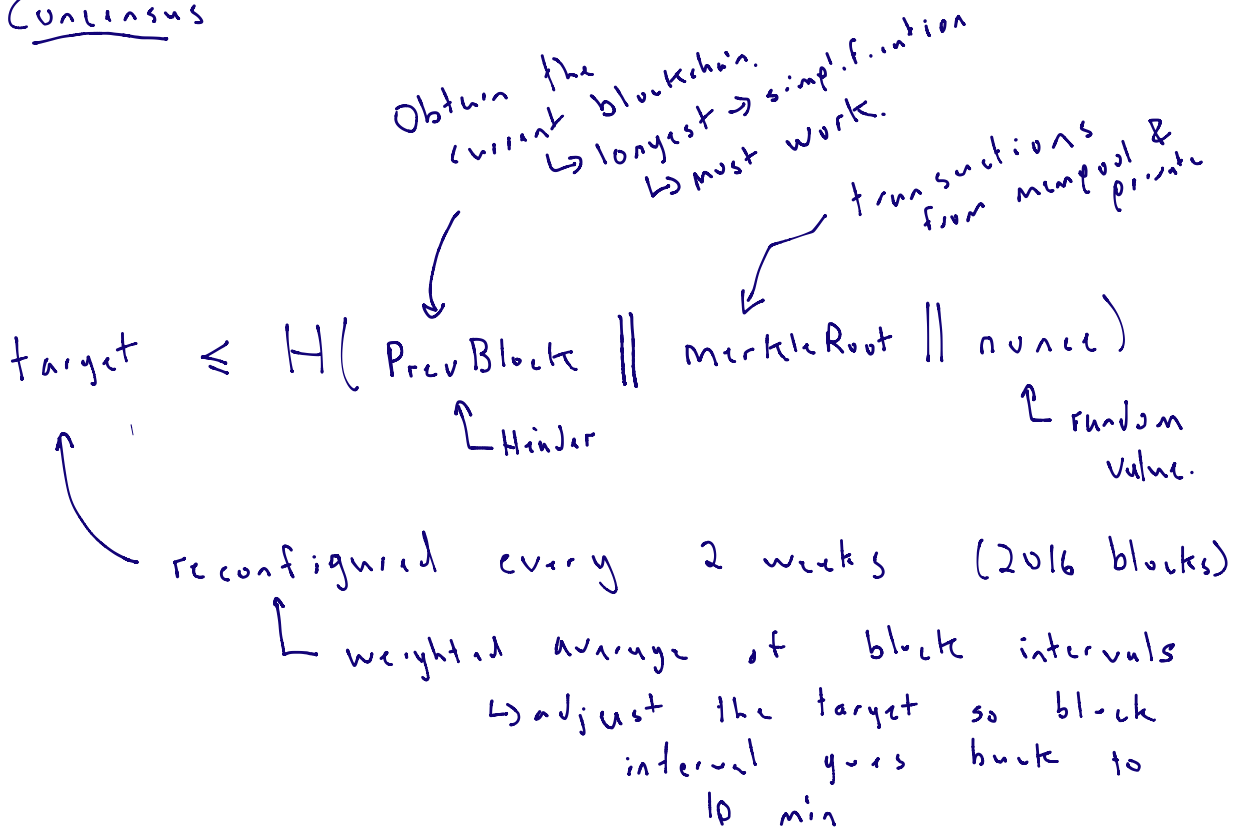 Consensus
Obtain the
current blockchain.
↳ longest → simplification
↳ most work.
transactions
from mempool &
private
target ≤ H( PrevBlock || merkleRoot || nonce)
Header
random
value.
reconfigured every 2 weeks (2016 blocks)
weighted average of block intervals
↳ adjust the target so block
interval goes back to
10 min